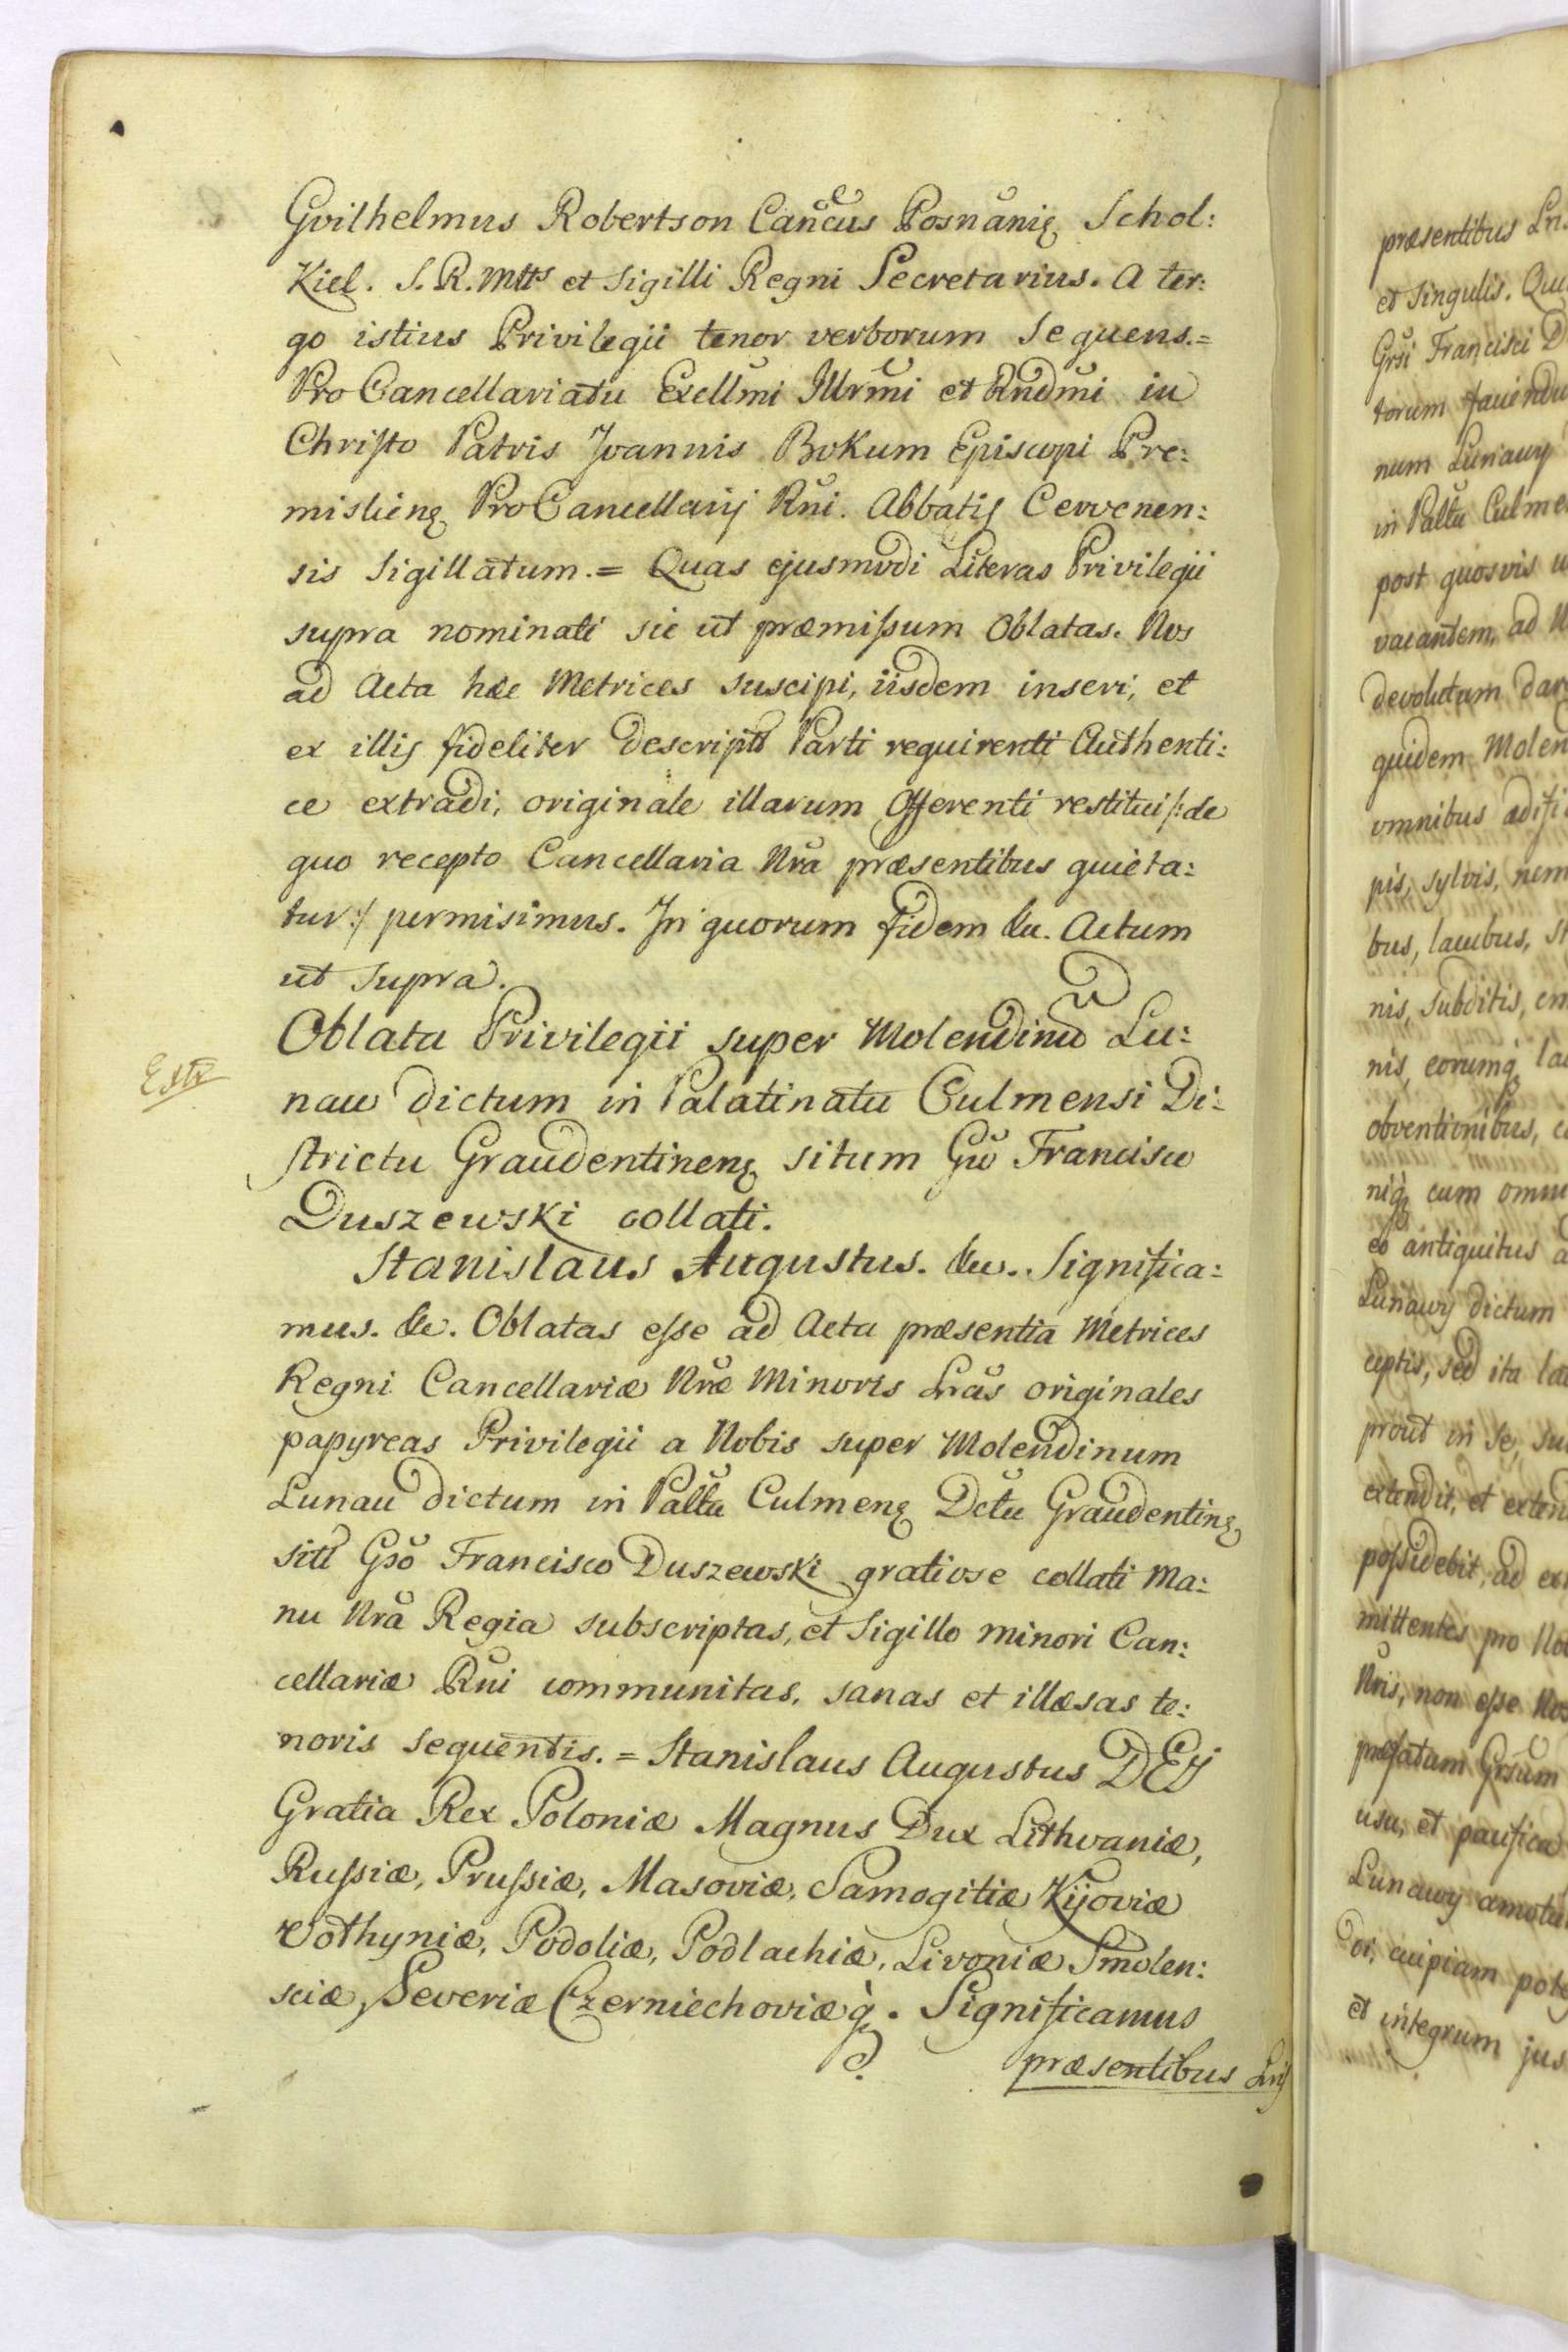 Gvilhelmus Robertson Canc̃us Posnãnię Schol:
Kiel. S. R. Mtts et Sigilli Regni Secretarius. A ter:
go istius Privilegii tenor verborum Sequens.=
Pro Cancellariatu Excellm̃i Illrm̃i et Rndm̃i in
Christo Patris Joannis Bokum Episcopi Pre:
mislienę ProCancellarij Rñi. Abbatis Cervenen:
sis Sigillatum.= Quas ejusmodi Literas Privilegii
supra nominati sic ut præmissum Oblatas. Nos
ad Acta hæc Metrices suscipi, iisdem inseri, et
ex illis fideliter descriptũ Parti requirenti Authenti:
ce extradi, originale illarum Offerenti restitui /:de
quo recepto Cancellaria Nrã præsentibus quieta:
tur:/ permisimus. In quorum fidem &c. Actum
ut Supra.
Estr
Oblata Privilegii super Molendinũ Lu:
nau dictum in Palatinatu Culmensi Di:
strictu Graudentinenę situm Gõ Francisco
Duszewski collati.
Stanislaus Augustus. &c. Significa:
mus. &c. Oblatas esse ad Acta præsentia Metrices
Regni Cancellariæ Nræ̃ Minoris Lrãs originales
papyreas Privilegii a Nobis super Molendinum
Lunau dictum in Paltũ Culmenę Dctũ Graudentinę
siti Gsõ Francisco Duszewski gratiose collati Ma:
nu Nrã Regia subscriptas, et Sigillo minori Can:
cellariæ Rñi communitas, sanas et illæsas te:
noris sequentis.= Stanislaus Augustus DEJ
Gratia Rex Poloniæ Magnus Dux Lithvaniæ,
Russiæ, Prussiæ, Masoviæ, Samogitiæ Kijoviæ
Volhyniæ, Podoliæ, Podlachiæ, Livoniæ Smolen:
sciæ, Severiæ Czerniechoviæq̀. Significamus
præsentibus Lris
præsentibus Lri
et Singulis. Qui
Grsĩ Francisci D
torum
num Lunawy
in Paltũ Culme
post quosvis u
vacantem, ad N
devolutam dar
quidem Molen
omnibus ædifi
pis, sylvis, nem
bus, lacubus, st
nis, subditis, em
nis, eorumq̀ la
obventionibus, c
niq̀ cum omni
eo antiquitus a
Lunawy dictum
ceptis, sed ita la
prout in se, su
extendit, et exten
possidebit, ad ex
mittentes pro No
Nris, non esse Nos
præfatam Grsũm
usu, et pacifica
Lunawy amotu
cuipiam pote
et integrum jus